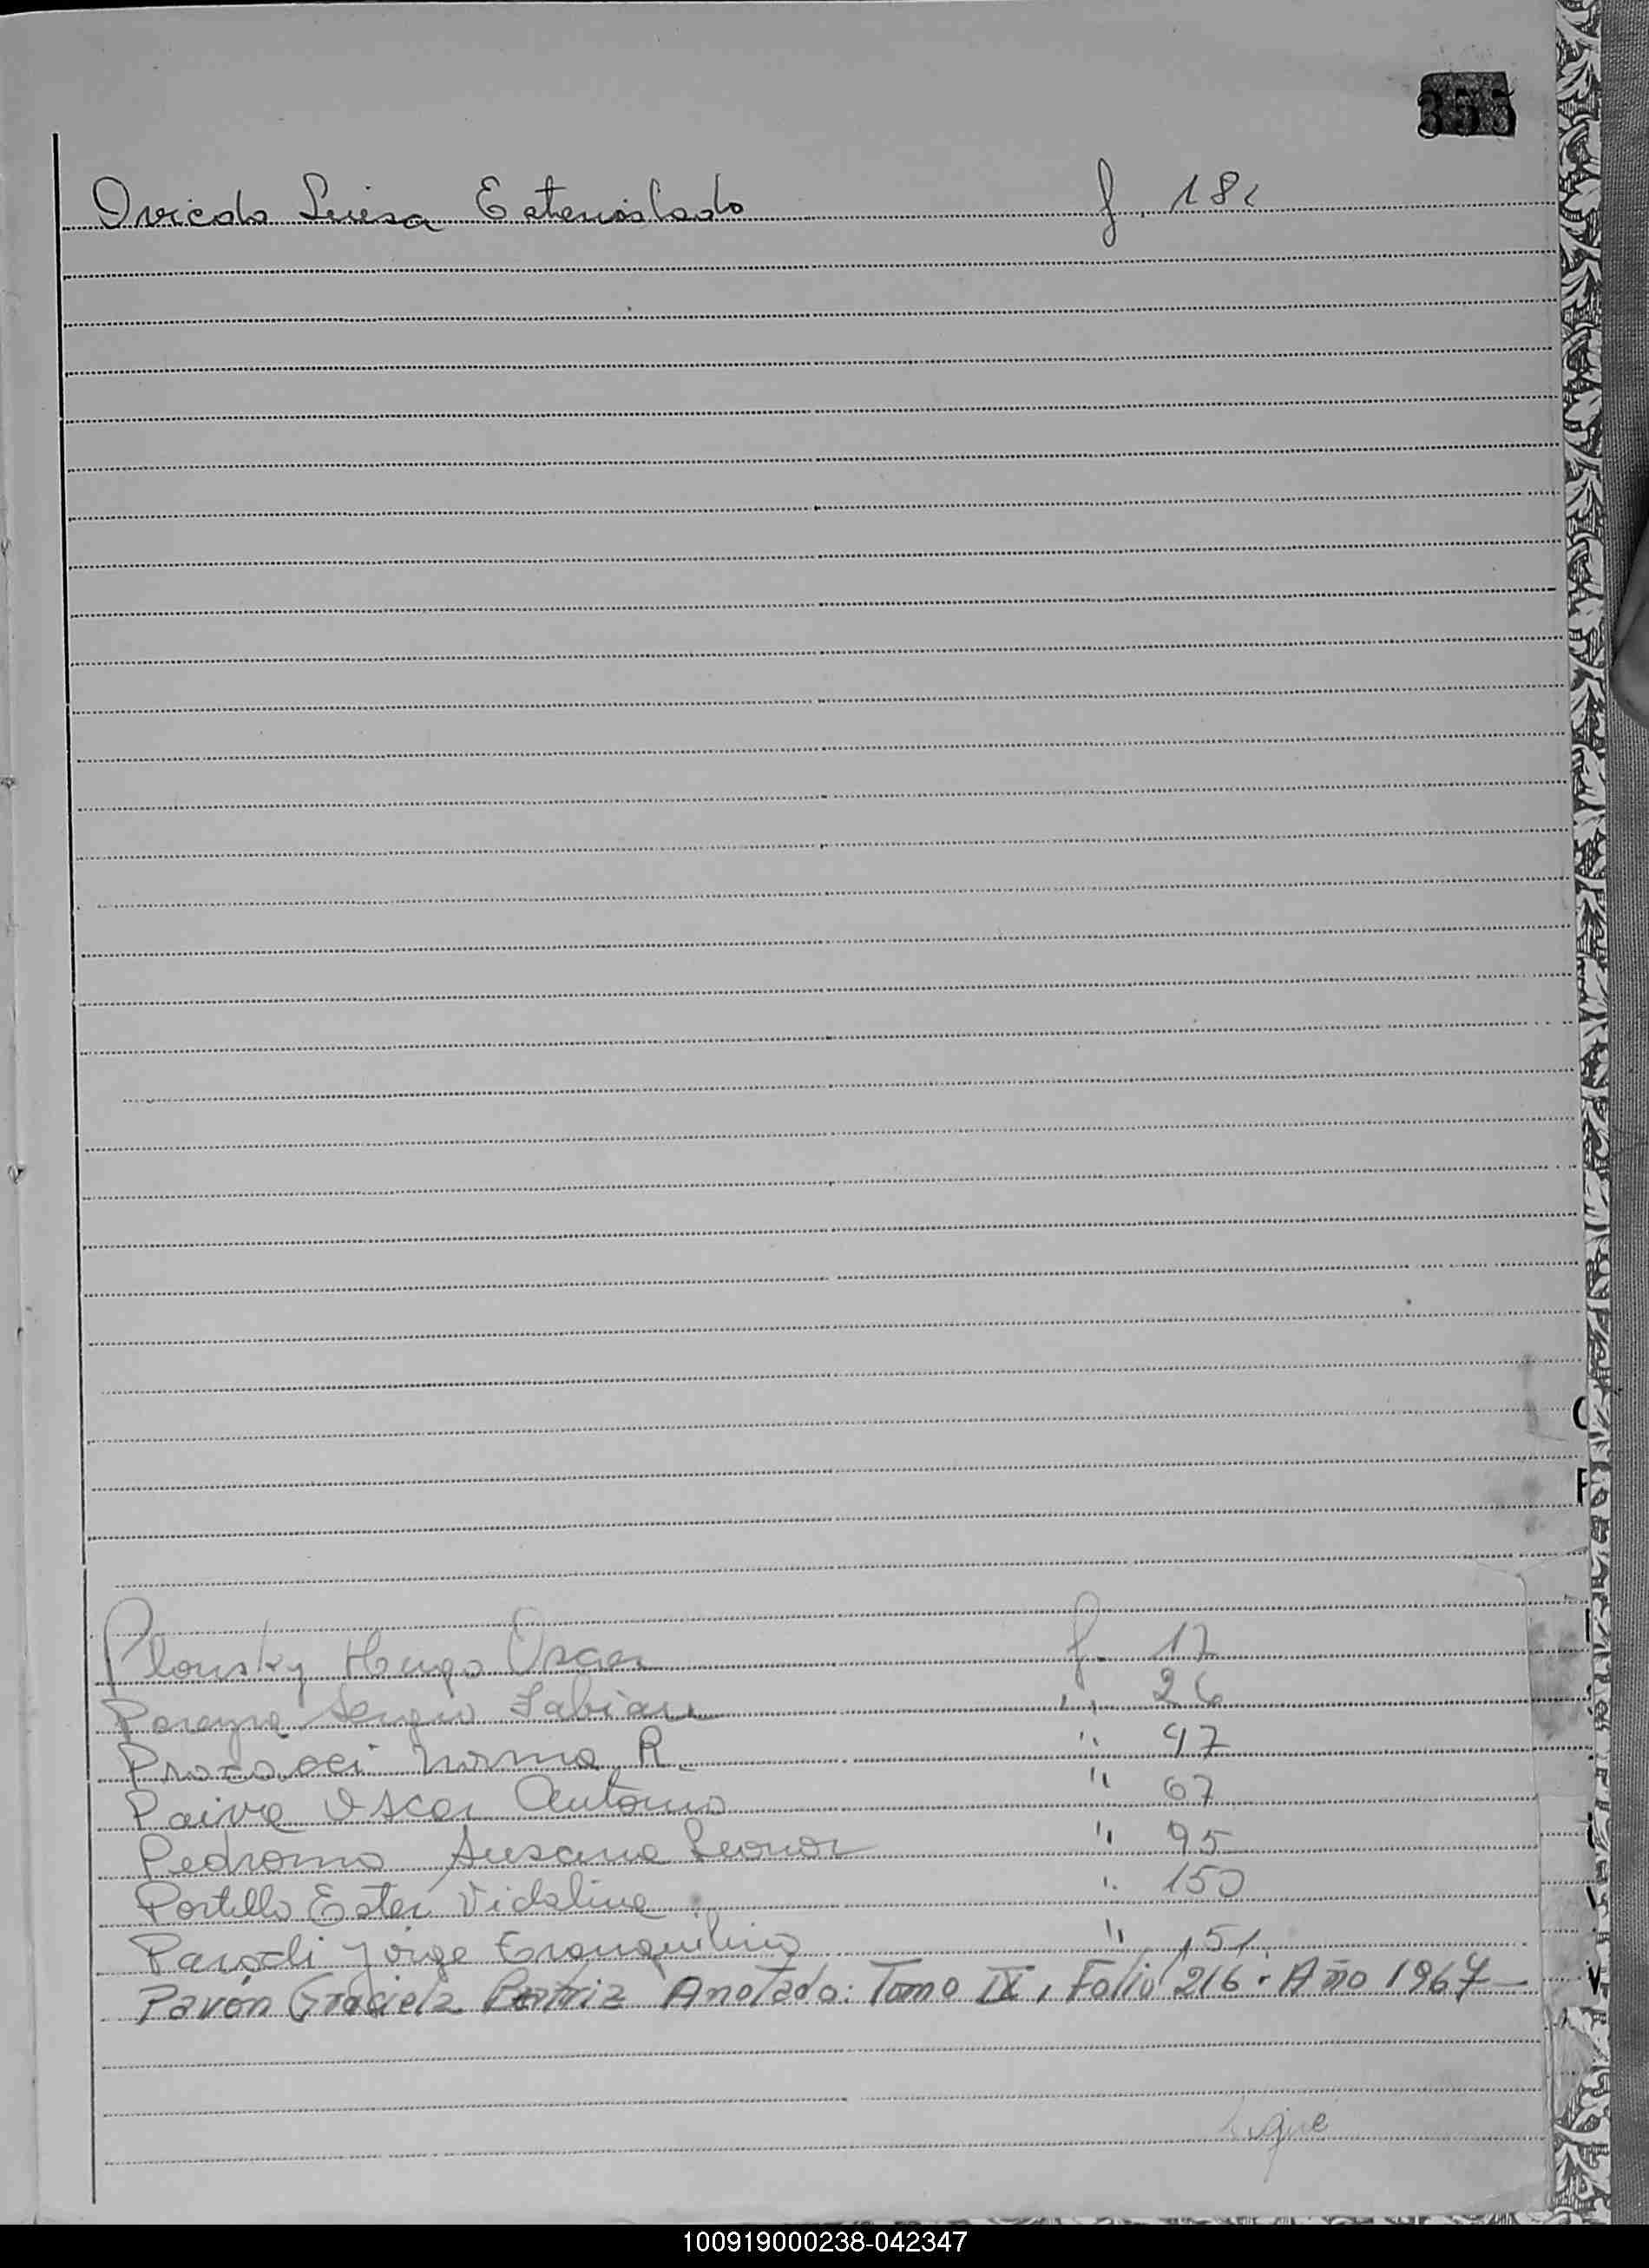 355
Ovicolo Luisa Estanislado f. 182
Plonsky Hugo Oscar f. 17
Pereyra Sergio Fabian " 26
Procacci Norma R. " 47
Paiva Oscar Antonio " 67
Pedromo Susana Leonor " 95
Portillo Ester Vidalina " 150
Parodi Jorge Tranquilino " 151
Pavón Graciela Beatriz Anotada: Tomo IX, Folio 216. Año 1967
sigue
100919000238-042347